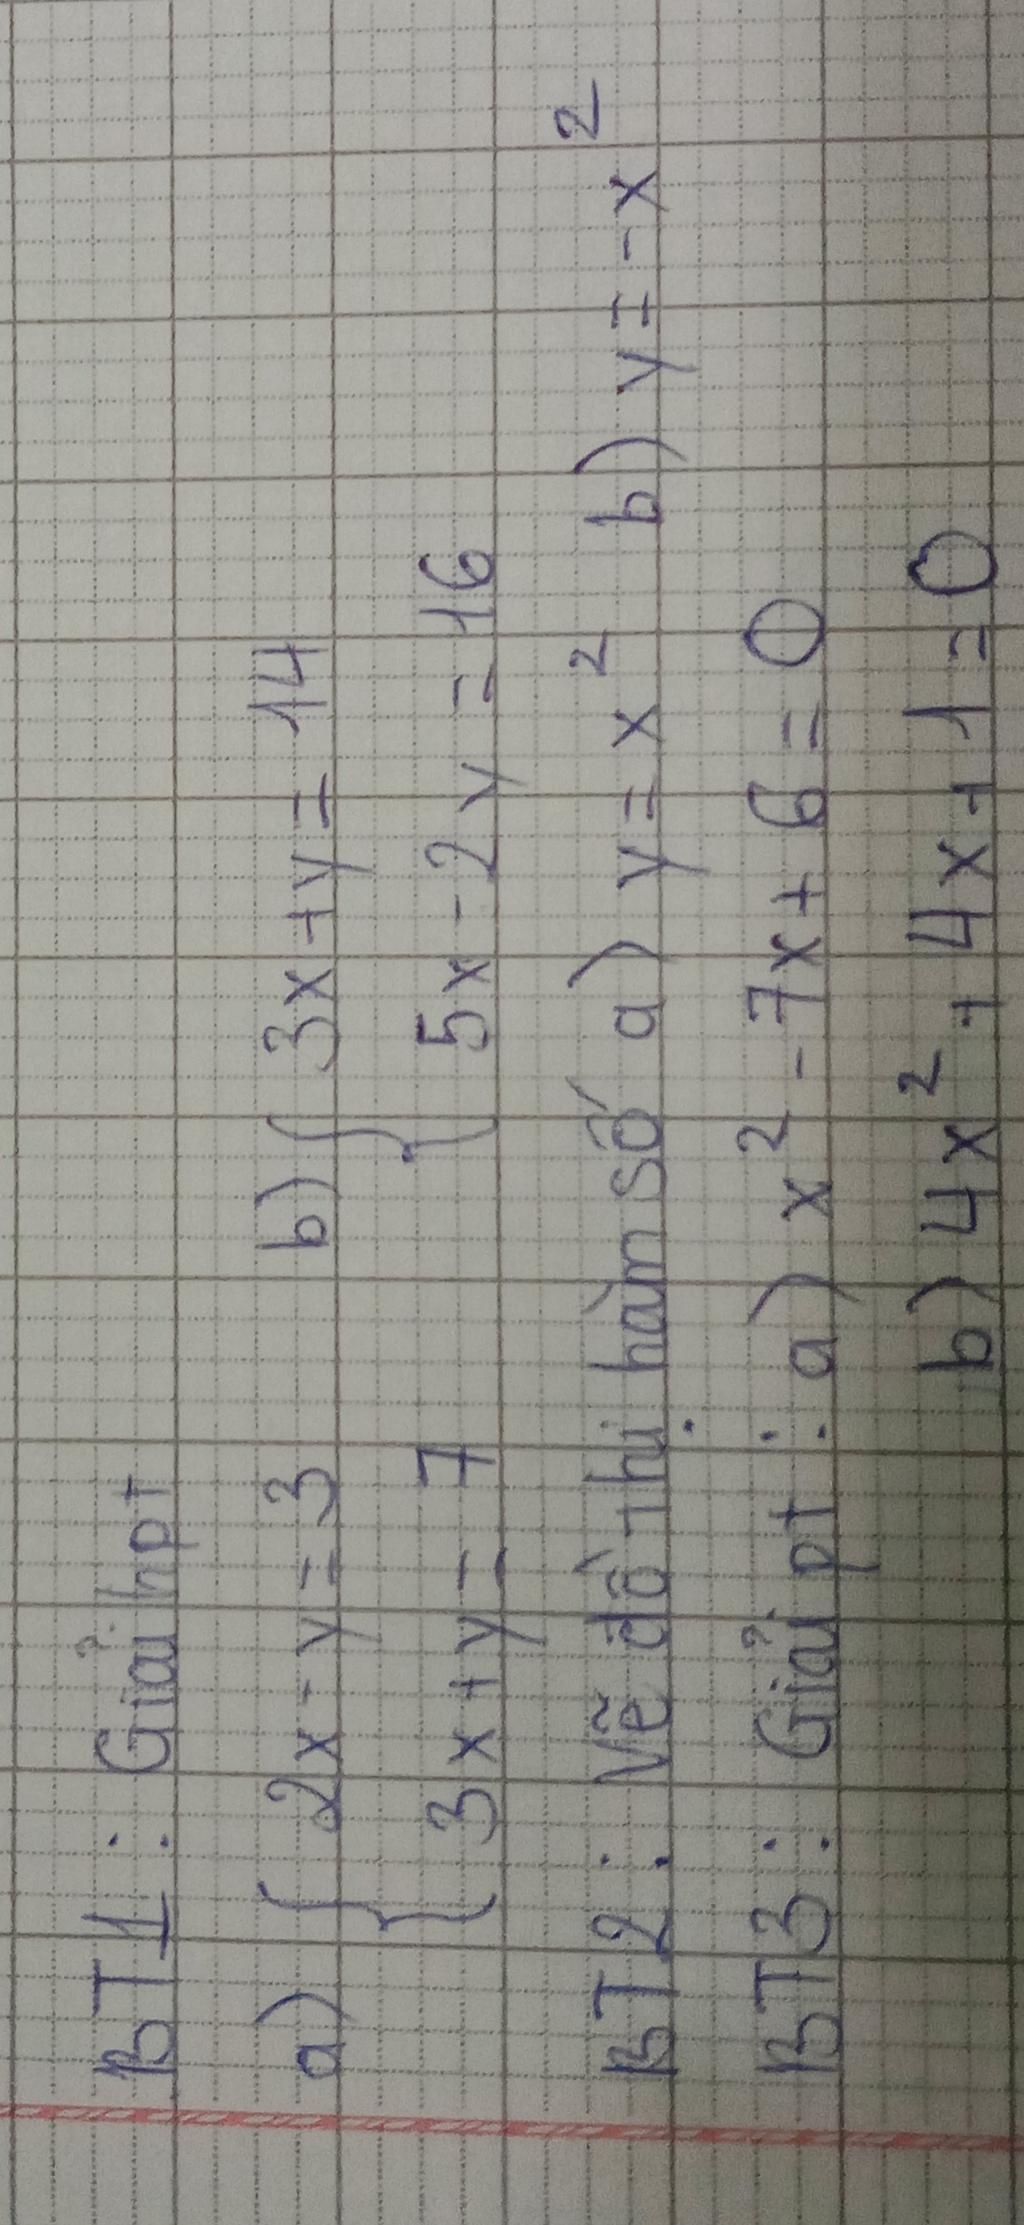 BT1: Giải hpt
a) { 2x - y = 3 b) { 3x + y = 14
3x + y = 7 5x - 2y = 16
BT2: Vẽ đồ thị hàm số a) y = x² b) y = -x²
BT3: Giải pt: a) x² - 7x + 6 = 0
b) 4x² + 4x + 1 = 0